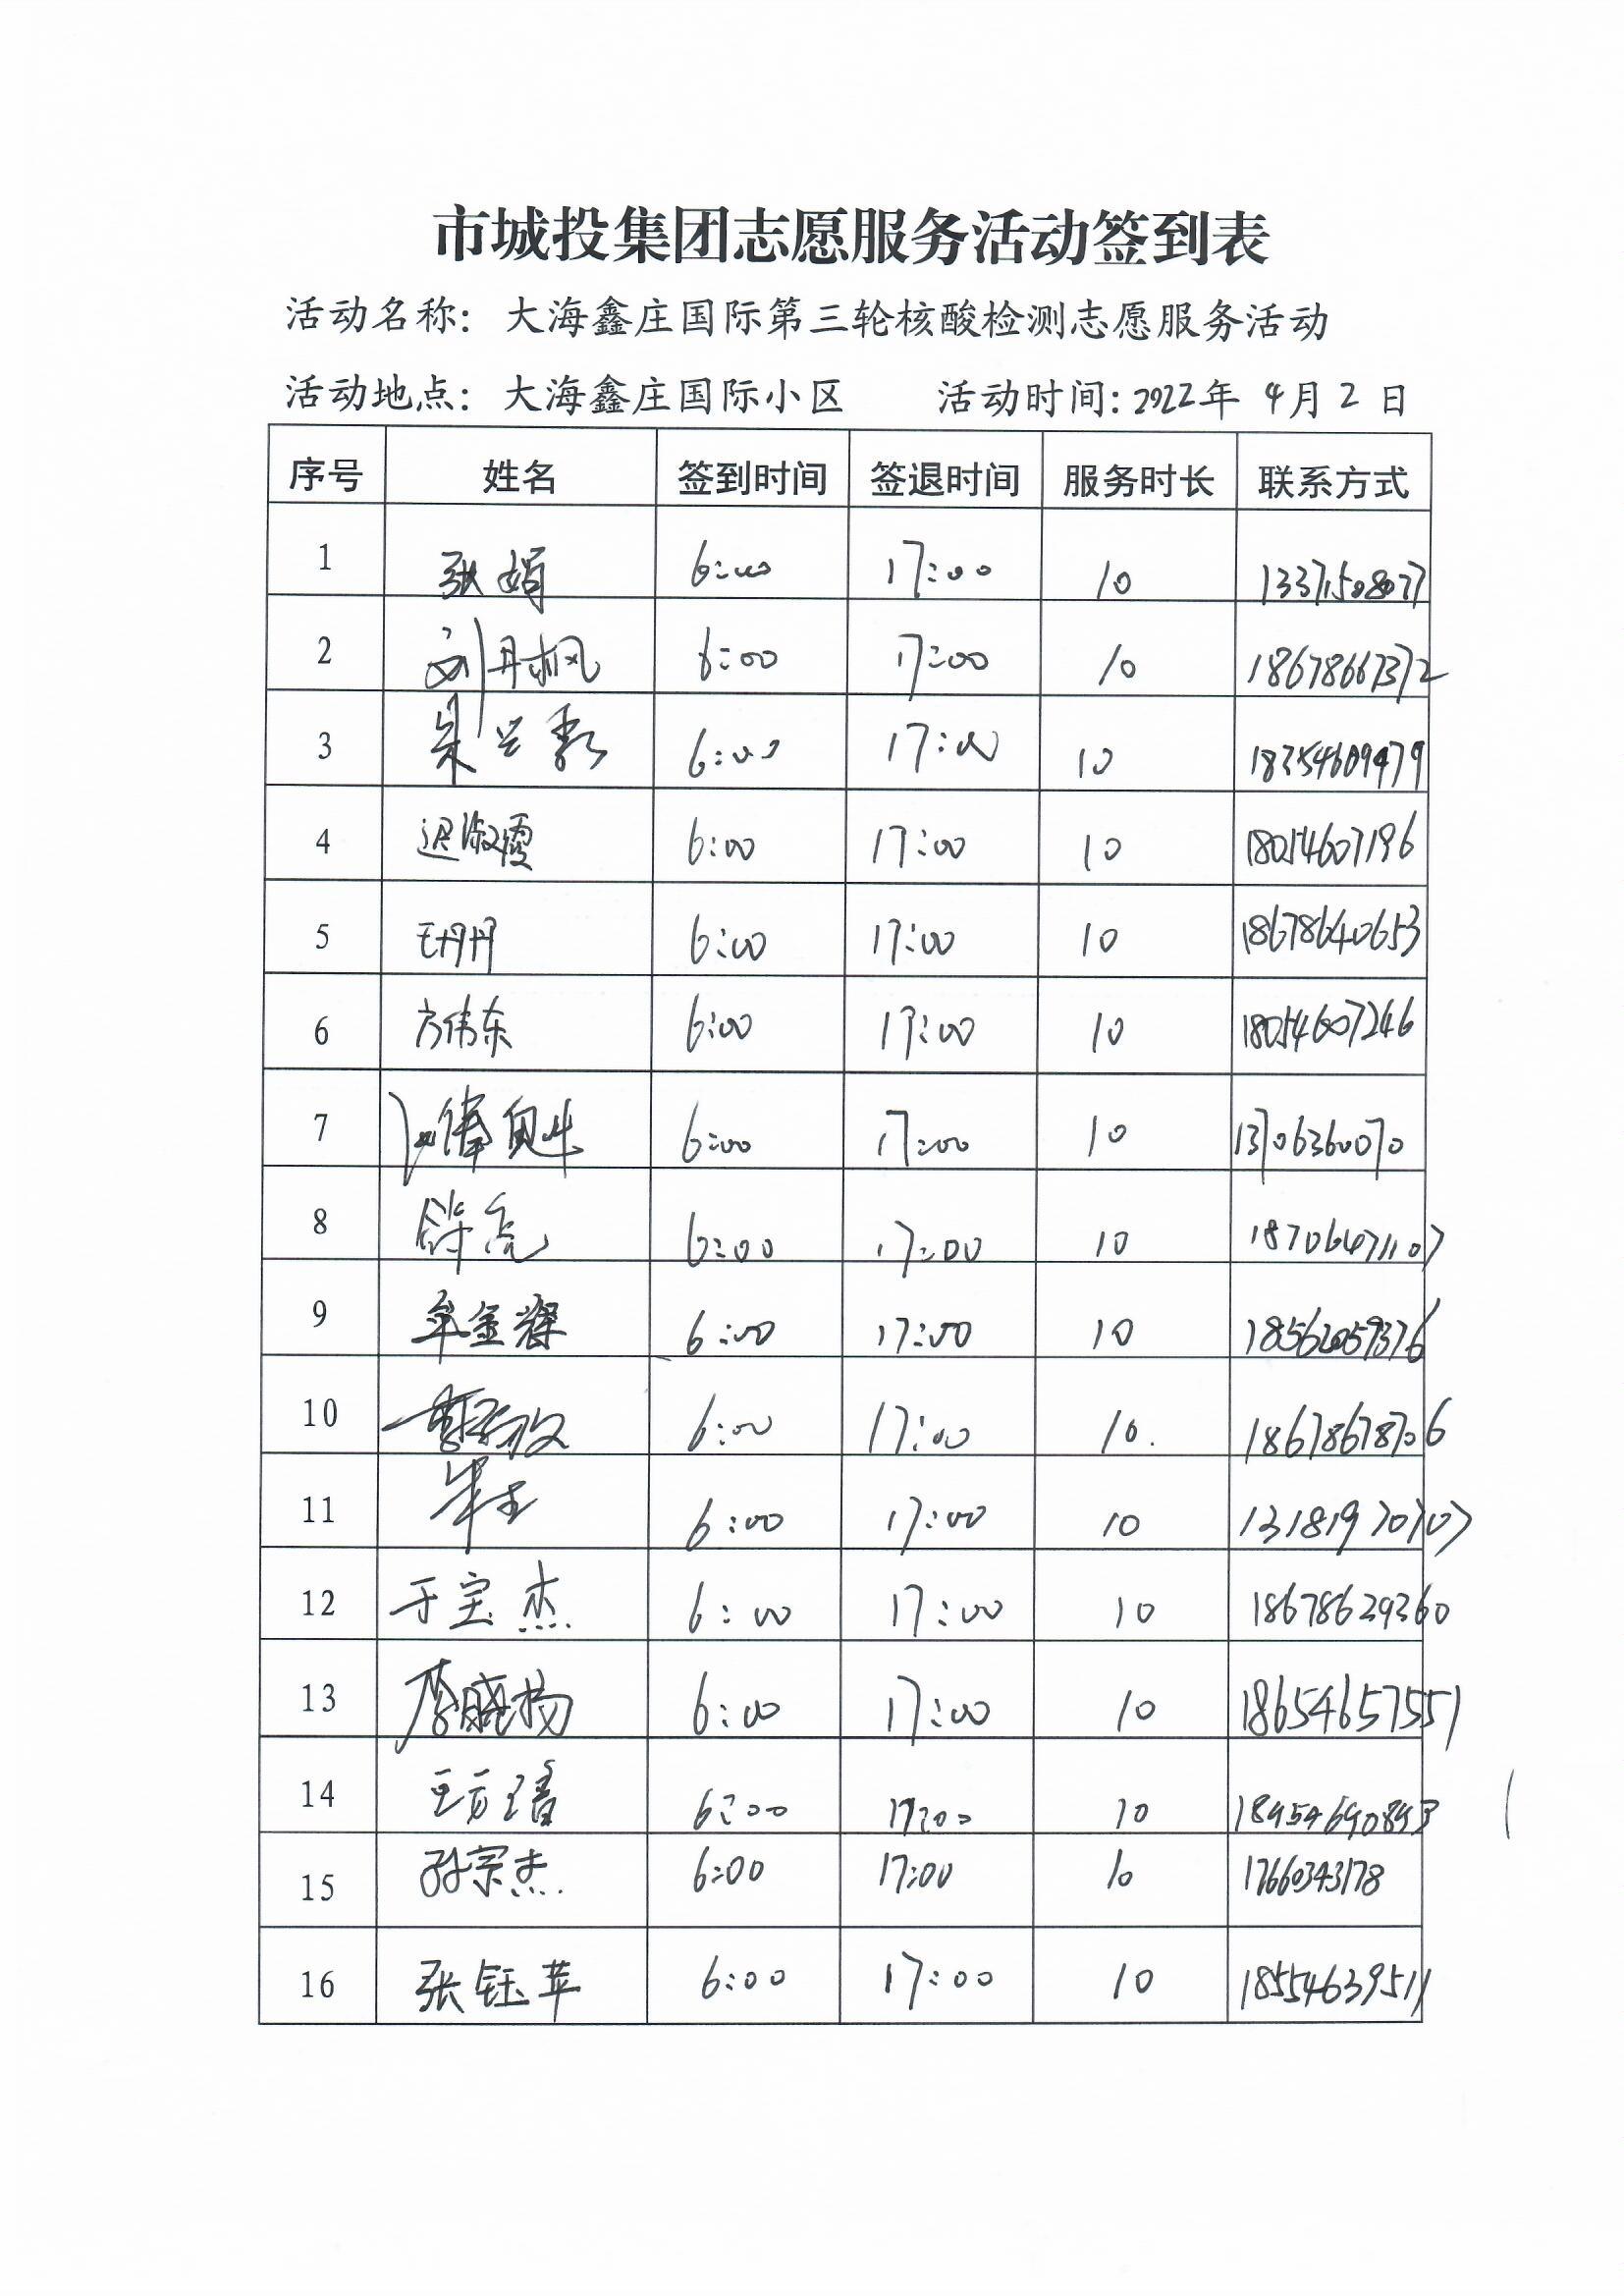 市城投集团志愿服务活动签到表
活动名称：大海鑫庄国际第三轮核酸检测志愿服务活动
活动地点：大海鑫庄国际小区 活动时间：2022年 4月 2 日
序号 姓名 签到时间 签退时间 服务时长 联系方式
1 张娟 6:00 17:00 10 13371508077
2 刘丹枫 6:00 17:00 10 18678667372
3 6:00 17:00 10 18354609479
4 迟淑霞 6:00 17:00 10 18054607196
5 王丹丹 6:00 17:00 10 18678640653
6 方伟东 6:00 17:00 10 18054607246
7 6:00 17:00 10 13706360070
8 徐亮 6:00 17:00 10 18706471107
9 牟金辉 6:00 17:00 10 18562059376
10 6:00 17:00 10. 18678678706
11 6:00 17:00 10 13181970707
12 于宝杰 6:00 17:00 10 18678629360
13 李晓杨 6:00 17:00 10 18654657551
14 王方璿 6:00 17:00 10 18954690893
15 孙宗杰 6:00 17:00 10 17660343178
16 张钰苹 6:00 17:00 10 18554639511